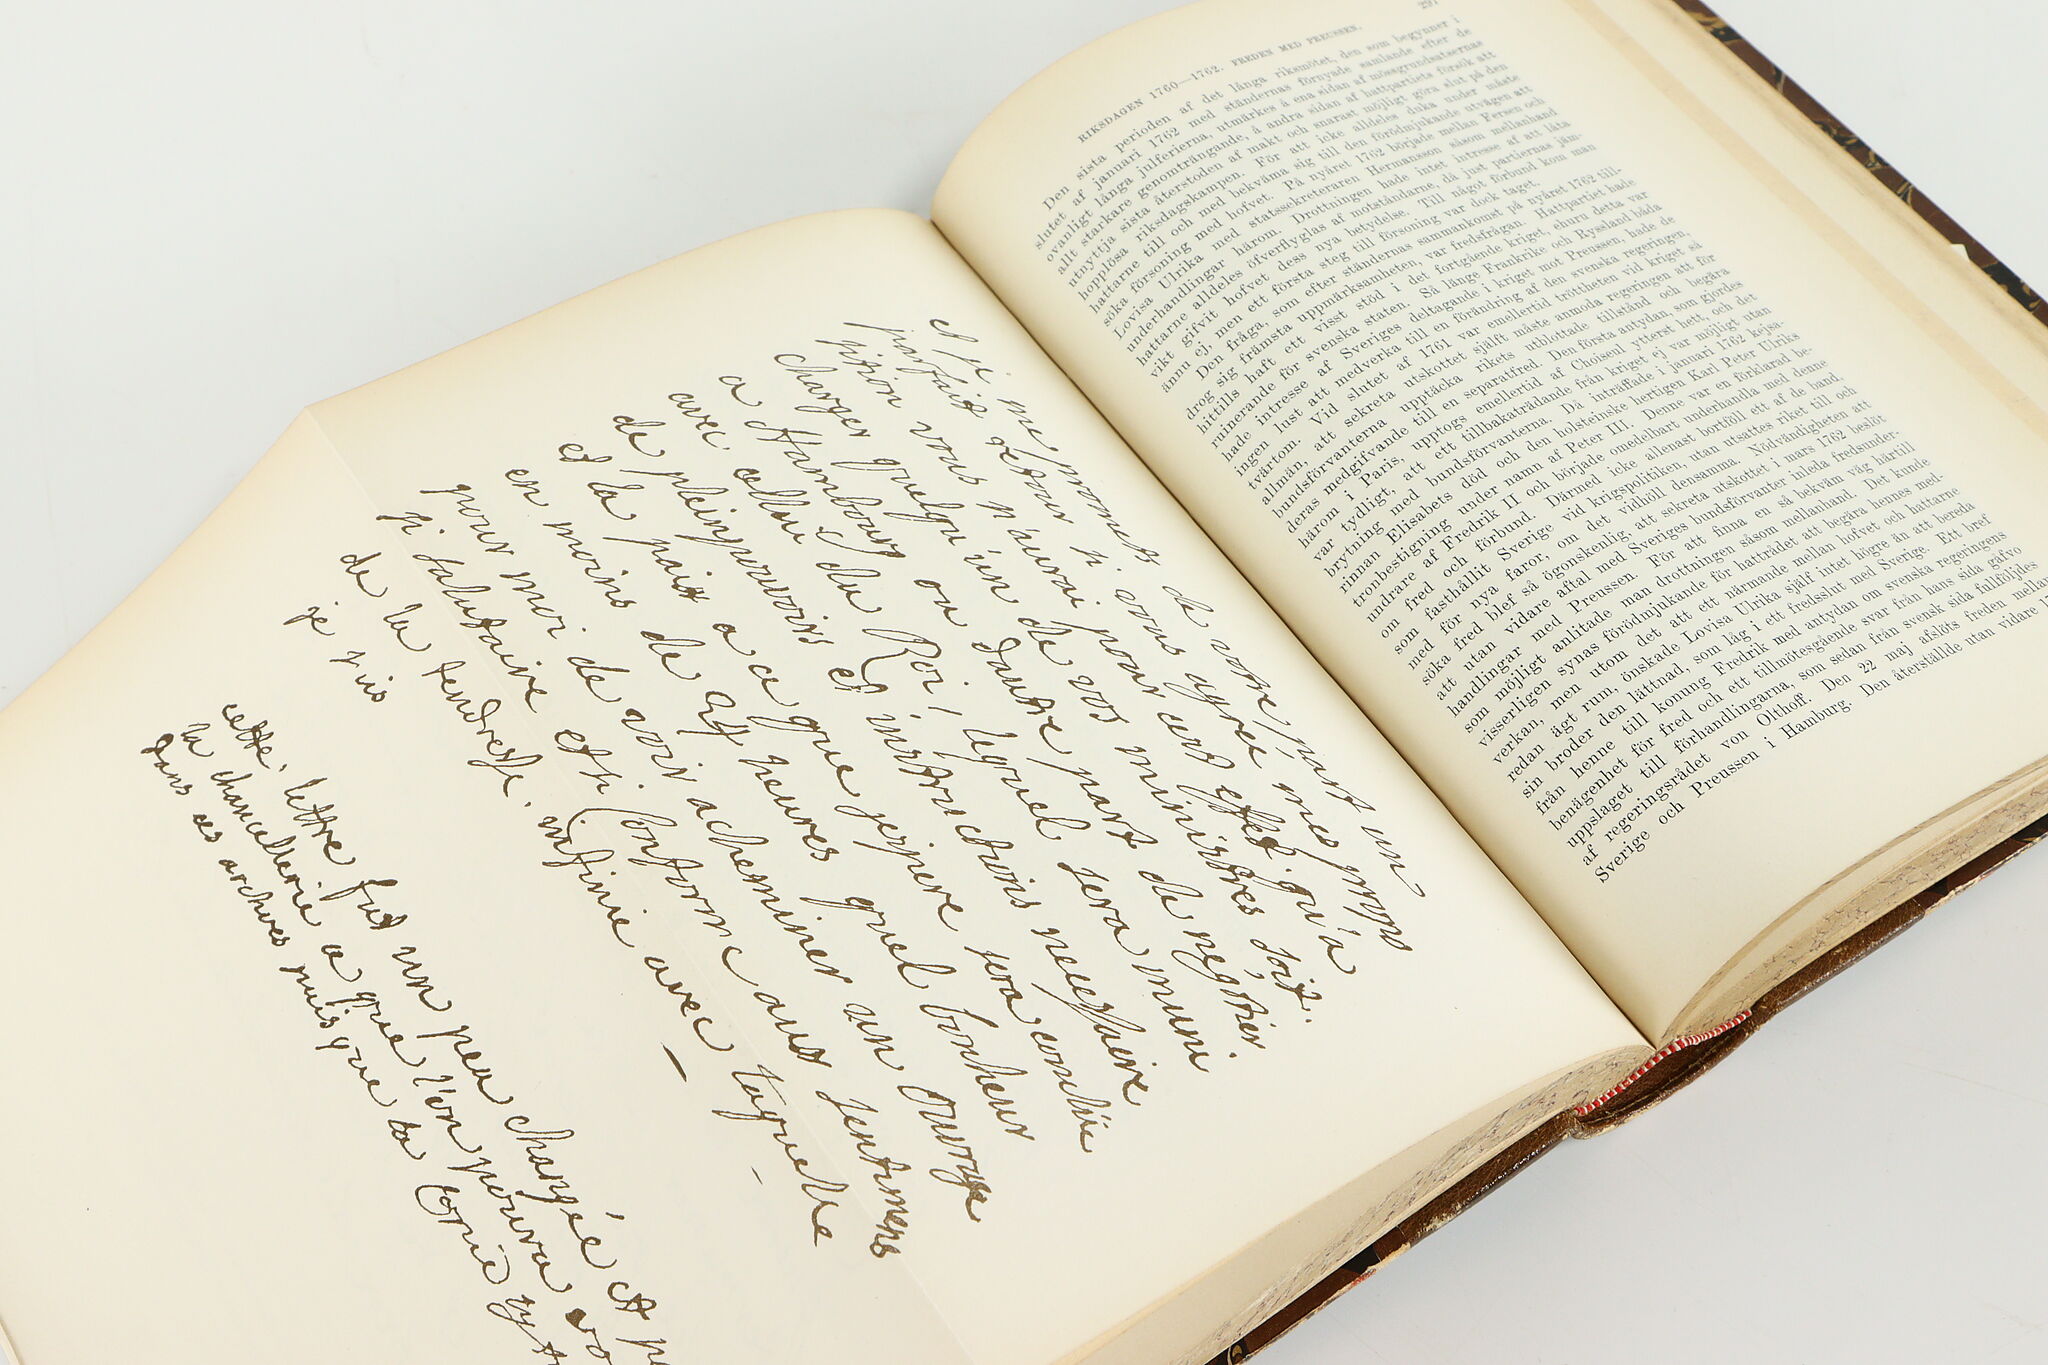 et je me promets de votre part un
parfait retour si vous agree mes propo
sition vous n'aurai pour cest effet qu'a
charger quelqu'un de vos ministres soit
a Hambourg ou dautre part de négotier
avec cellui du Roi, lequel sera muni
de pleinpouvoirs et instructions necessaire
et la paix a ce que jespere sera conclue
en moins de 24 heures quel bonheur
pour moi de voir acheminer un ouvrage
si salutaire et si conforme aux sentimens
de la tendresse infinie avec laquelle
je suis
cette lettre fut un peu changée et
la chancellerie a que l'on pourra
dans ces archives mais que la copie
RIKSDAGEN 1760—1762. FREDEN MED PREUSSEN.
297
Den sista perioden af det långa riksmötet, den som begynner i
slutet af januari 1762 med ständernas förnyade samlande efter de
ovanligt långa julferierna, utmärkes å ena sidan af mössgrundsatsernas
allt starkare genomträngande, å andra sidan af hattpartiets försök att
utnyttja sista återstoden af makt och snarast möjligt göra slut på den
hopplösa riksdagskampen. För att icke alldeles duka under måste
hattarne till och med bekväma sig till den förödmjukande utvägen att
söka försoning med hofvet. På nyåret 1762 började mellan Fersen och
Lovisa Ulrika med statssekreteraren Hermansson såsom mellanhand
underhandlingar härom. Drottningen hade intet intresse af att låta
hattarne alldeles öfverflyglas af motståndarne, då just partiernas jäm-
vikt gifvit hofvet dess nya betydelse. Till något förbund kom man
ännu ej, men ett första steg till försoning var dock taget.
Den fråga, som efter ständernas sammankomst på nyåret 1762 till-
drog sig främsta uppmärksamheten, var fredsfrågan. Hattpartiet hade
hittills haft ett visst stöd i det fortgående kriget, ehuru detta var
ruinerande för svenska staten. Så länge Frankrike och Ryssland båda
hade intresse af Sveriges deltagande i kriget mot Preussen, hade de
ingen lust att medverka till en förändring af den svenska regeringen,
tvärtom. Vid slutet af 1761 var emellertid tröttheten vid kriget så
allmän, att sekreta utskottet självt måste anmoda regeringen att för
bundsförvanterna upptäcka rikets utblottade tillstånd och begära
deras medgifvande till en separatfred. Den första antydan, som gjordes
härom i Paris, upptogs emellertid af Choiseul ytterst hett, och det
var tydligt, att ett tillbakaträdande från kriget ej var möjligt utan
brytning med bundsförvanterna. Då inträffade i januari 1762 kejsa-
rinnan Elisabets död och den holsteinske hertigen Karl Peter Ulriks
tronbestigning under namn af Peter III. Denne var en förklarad be-
undrare af Fredrik II och började omedelbart underhandla med denne
om fred och förbund. Därmed icke allenast bortföll ett af de band,
som fasthållit Sverige vid krigspolitiken, utan utsattes riket till och
med för nya faror, om det vidhöll densamma. Nödvändigheten att
söka fred blef så ögonskenlig, att sekreta utskottet i mars 1762 beslöt
att utan vidare aftal med Sveriges bundsförvanter inleda fredsunder-
handlingar med Preussen. För att finna en så bekväm väg härtill
som möjligt anlitade man drottningen såsom mellanhand. Det kunde
visserligen synas förödmjukande för hattrådet att begära hennes med-
verkan, men utom det att ett närmande mellan hofvet och hattarne
redan ägt rum, önskade Lovisa Ulrika själf intet högre än att bereda
sin broder den lättnad, som låg i ett fredsslut med Sverige. Ett bref
från henne till konung Fredrik med antydan om svenska regeringens
benägenhet för fred och ett tillmötesgående svar från hans sida gåfvo
uppslaget till förhandlingarna, som sedan från svensk sida fullföljdes
af regeringsrådet von Olthoff. Den 22 maj afslöts freden mellan
Sverige och Preussen i Hamburg. Den återställde utan vidare